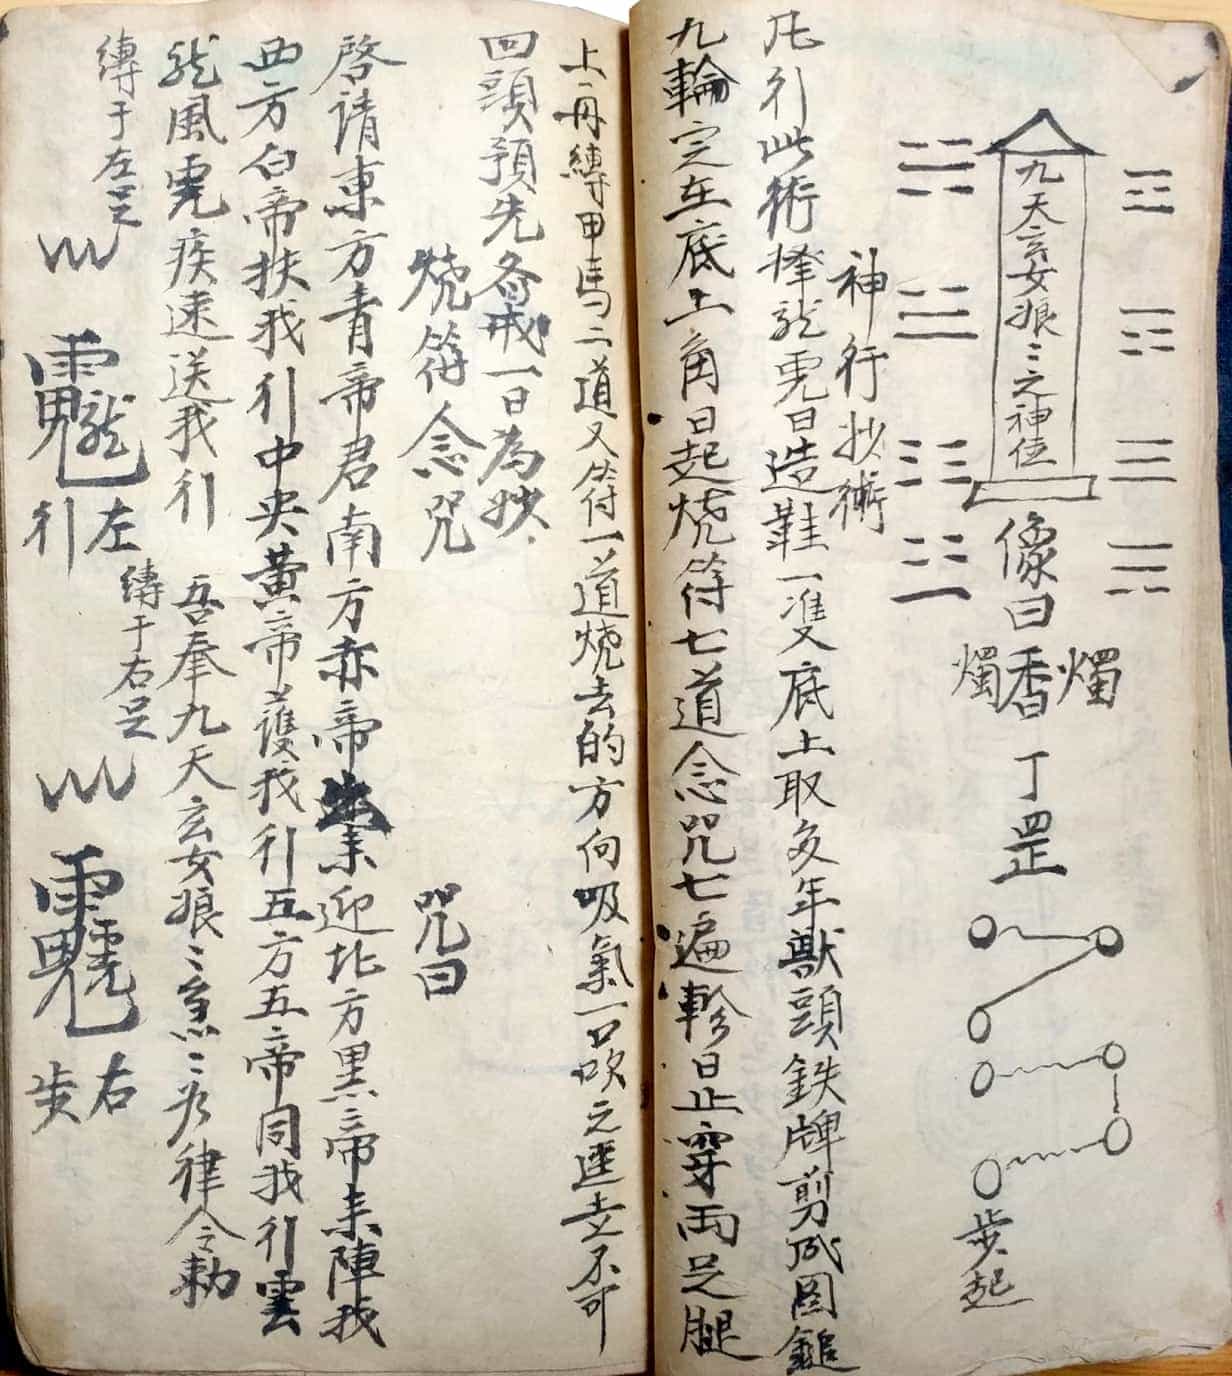 九天玄女娘〻之神位
像曰
燭香燭
丁罡
步起
神行抄術
凡行此術擇龍虎日造鞋一双底上取多年獸頭鉄牌剪成图鎚
九輪定在底上角日起燒符七道念咒七遍軫日止穿両足腿
上再縛甲馬二道又符一道燒去的方向吸氣一口吹之逕走不可
回頭預先齋戒一日為妙
燒符念咒 咒曰
啓請東方青帝君南方赤帝來迎北方黑帝來陣我
西方白帝扶我行中央黃帝護我行五方五帝同我行雲
龍風虎疾速送我行 吾奉九天玄女娘〻急〻如律令勅
縛于左足
左行
縛于右足
右步